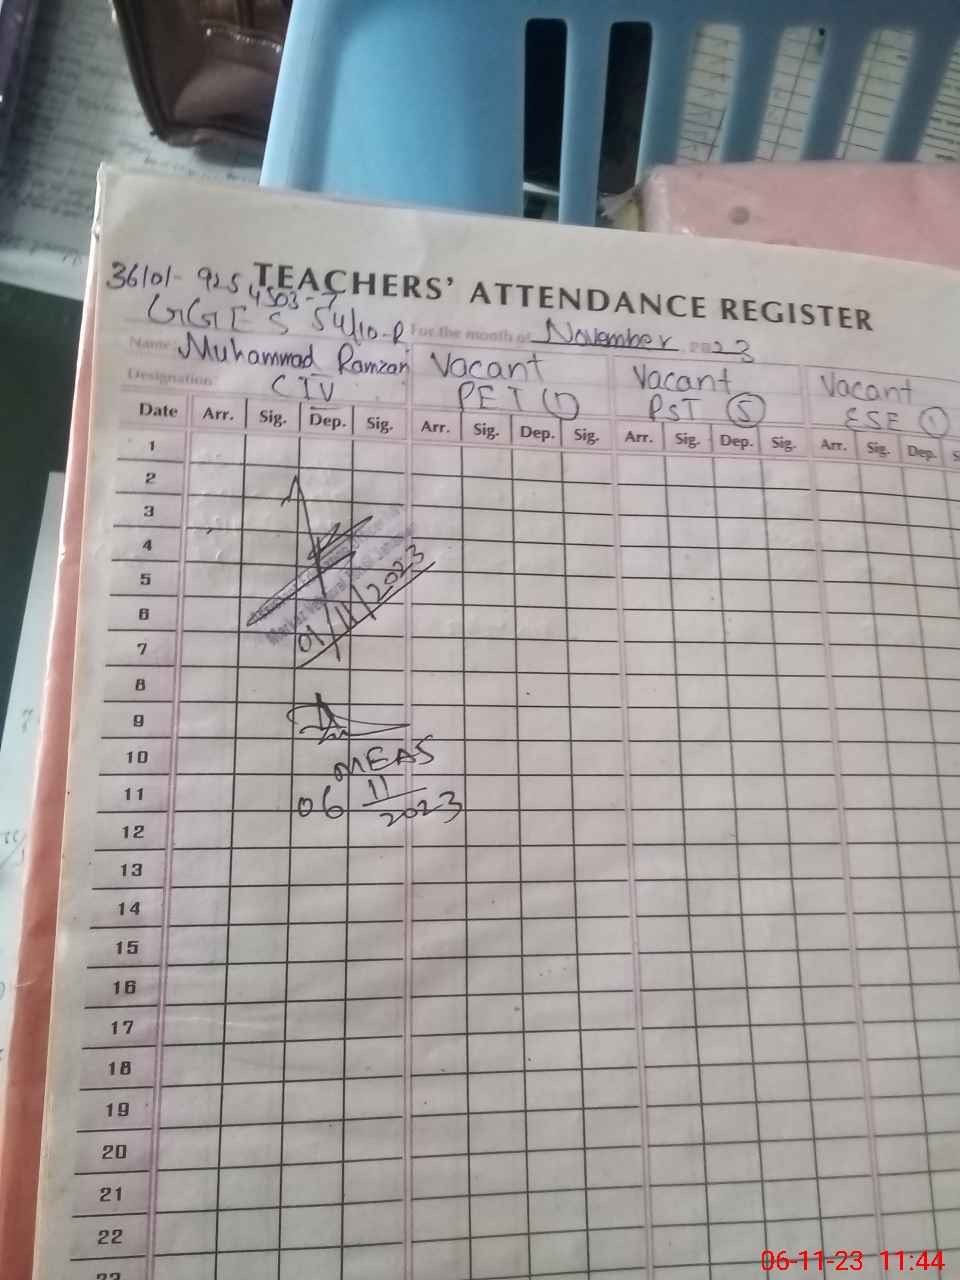 36101-9254503-7
TEACHERS' ATTENDANCE REGISTER
GGES 54/10-R For the month of November 2023
Name: Muhammad Ramzan Vacant Vacant Vacant
Designation: CIV PET (1) PST (5) ESE (1)
Date Arr. Sig. Dep. Sig. Arr. Sig. Dep. Sig. Arr. Sig. Dep. Sig. Arr. Sig. Dep. S
1
2
3
4
5
6
7
01/11/2023
8
9
10
MEAS
11
06 11 2023
12
13
14
15
16
17
18
19
20
21
22
23
06-11-23 11:44